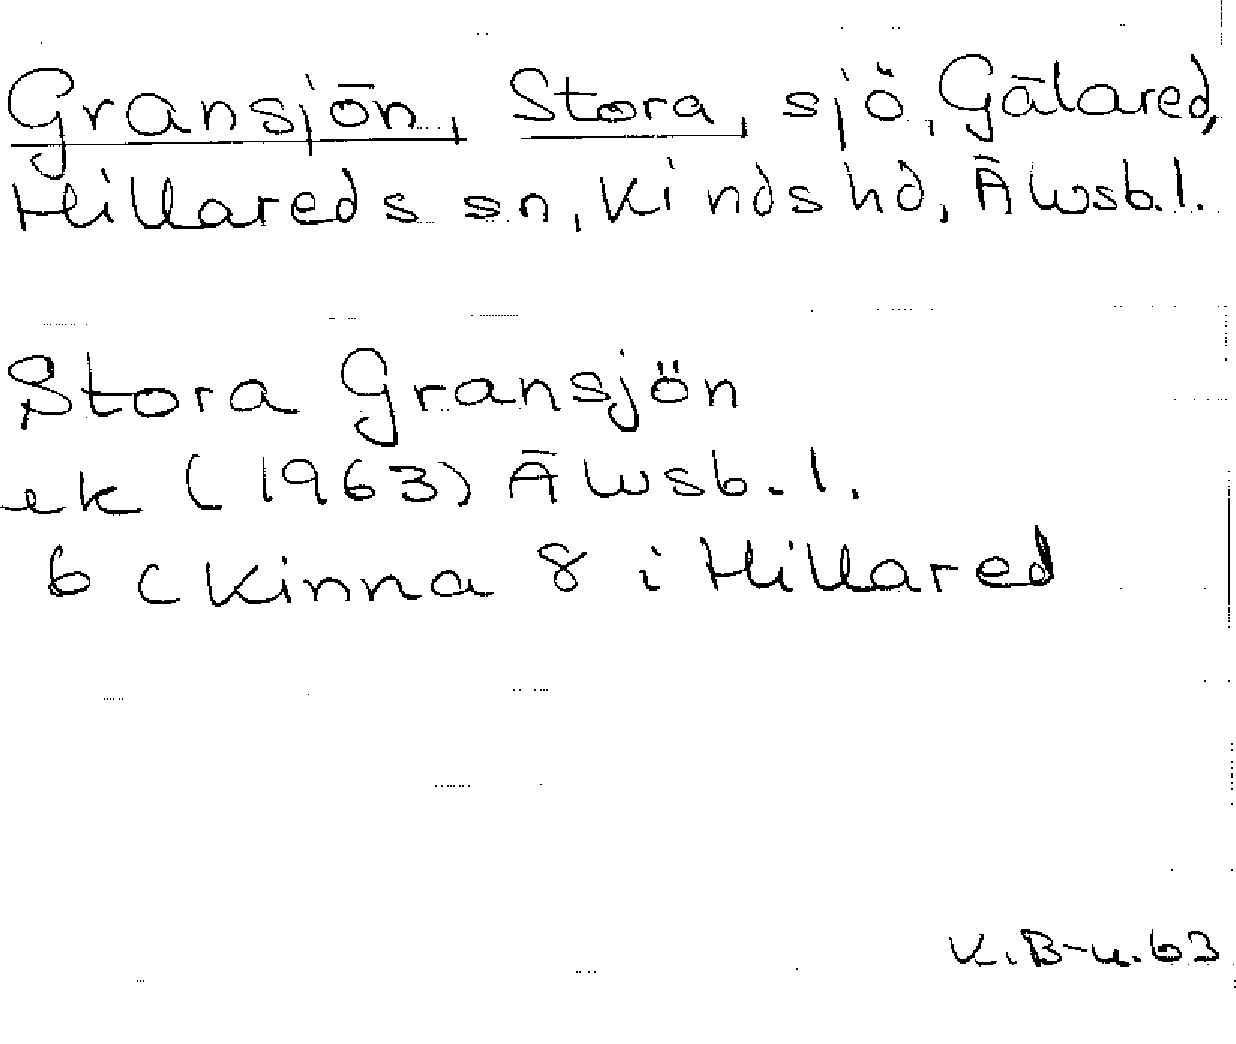 Gransjön, Stora, sjö, Gälared,
Hillareds sn, Kinds hd, Älvsb.l.
Stora Gransjön
ek (1963) Älvsb.l.
6 C Kinna 8 i Hillared
K.B-n.63